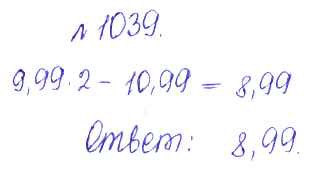 № 1039.
9,99 · 2 - 10,99 = 8,99
Ответ: 8,99.